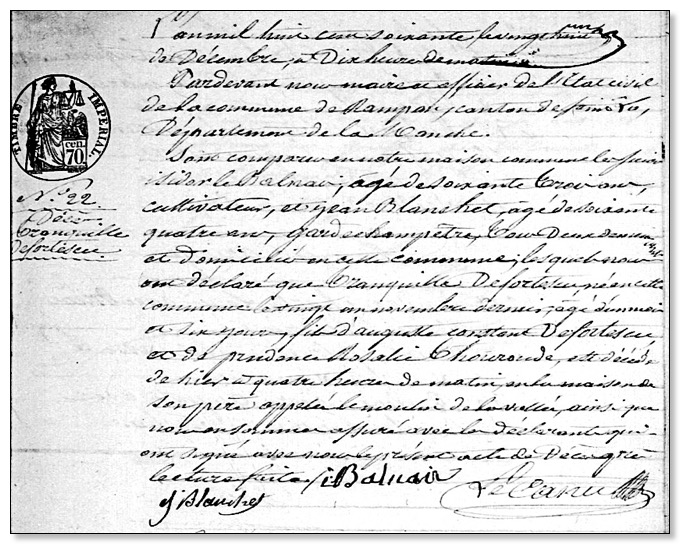 L'an mil huit cent soixante le vingt huit
de Décembre, à Dix heures du matin
Pardevant nous maire et officier de l'Etat civil
de la commune de Rampan, canton de Saint Lo,
Département de la Manche.
Sont comparu en notre maison commune les sieurs
isidor le Balnoir, âgé de soixante trois ans,
cultivateur, et jean Blanchet, âgé de soixante
quatre ans, garde champêtre, tous Deux
et Domiciliés en cette commune, lesquels nous
ont déclaré que tranquille Defortescu né en cette
commune le vingt un novembre dernier, âgé d'un mois
et six jours, fils d'auguste constant Defortescu
et de prudence Rosalie Thouroude, est décédé
de hier à quatre heures du matin, en la maison de
son père appelée le moulin de la vallée, ainsi que
nous en sommes assuré avec les declarants qui
ont signé avec nous le présent acte de Décès après
lecture faite. i Balnoir
j Blanchet Le Canu
TIMBRE IMPERIAL.
70 cen.
No. 22
Décès
tranquille
defortescu